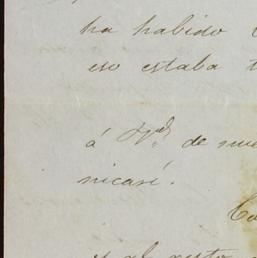 ha habido
eso estaba
á Vd. de nue
nicaré.
es el resto